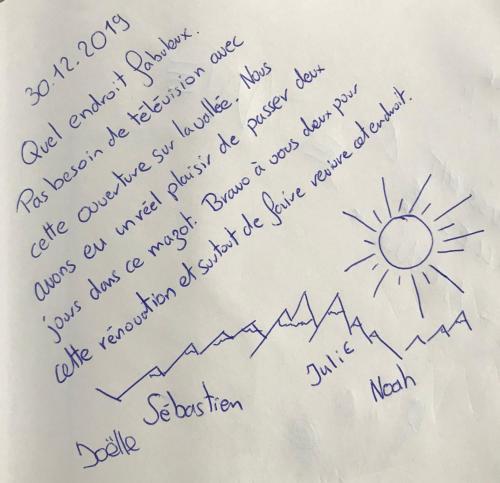 30.12.2019
Quel endroit fabuleux.
Pas besoin de télévision avec
cette ouverture sur la vallée. Nous
avons eu un réel plaisir de passer deux
jours dans ce mazot. Bravo à vous deux pour
cette rénovation et surtout de faire revivre cet endroit.
Joëlle
Sébastien
Julie
Noah